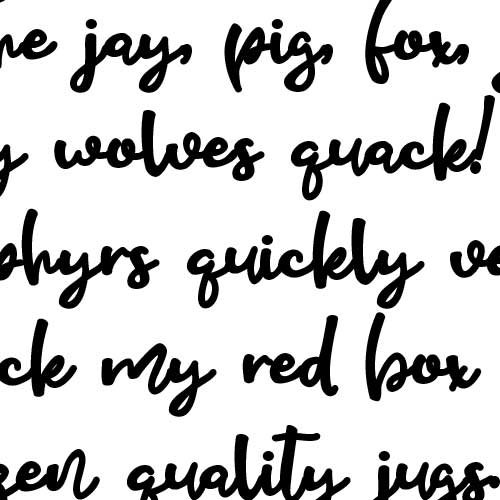 me jay, pig, fox,
y wolves quack!
phyrs quickly ve
ck my red box
zen quality jugs